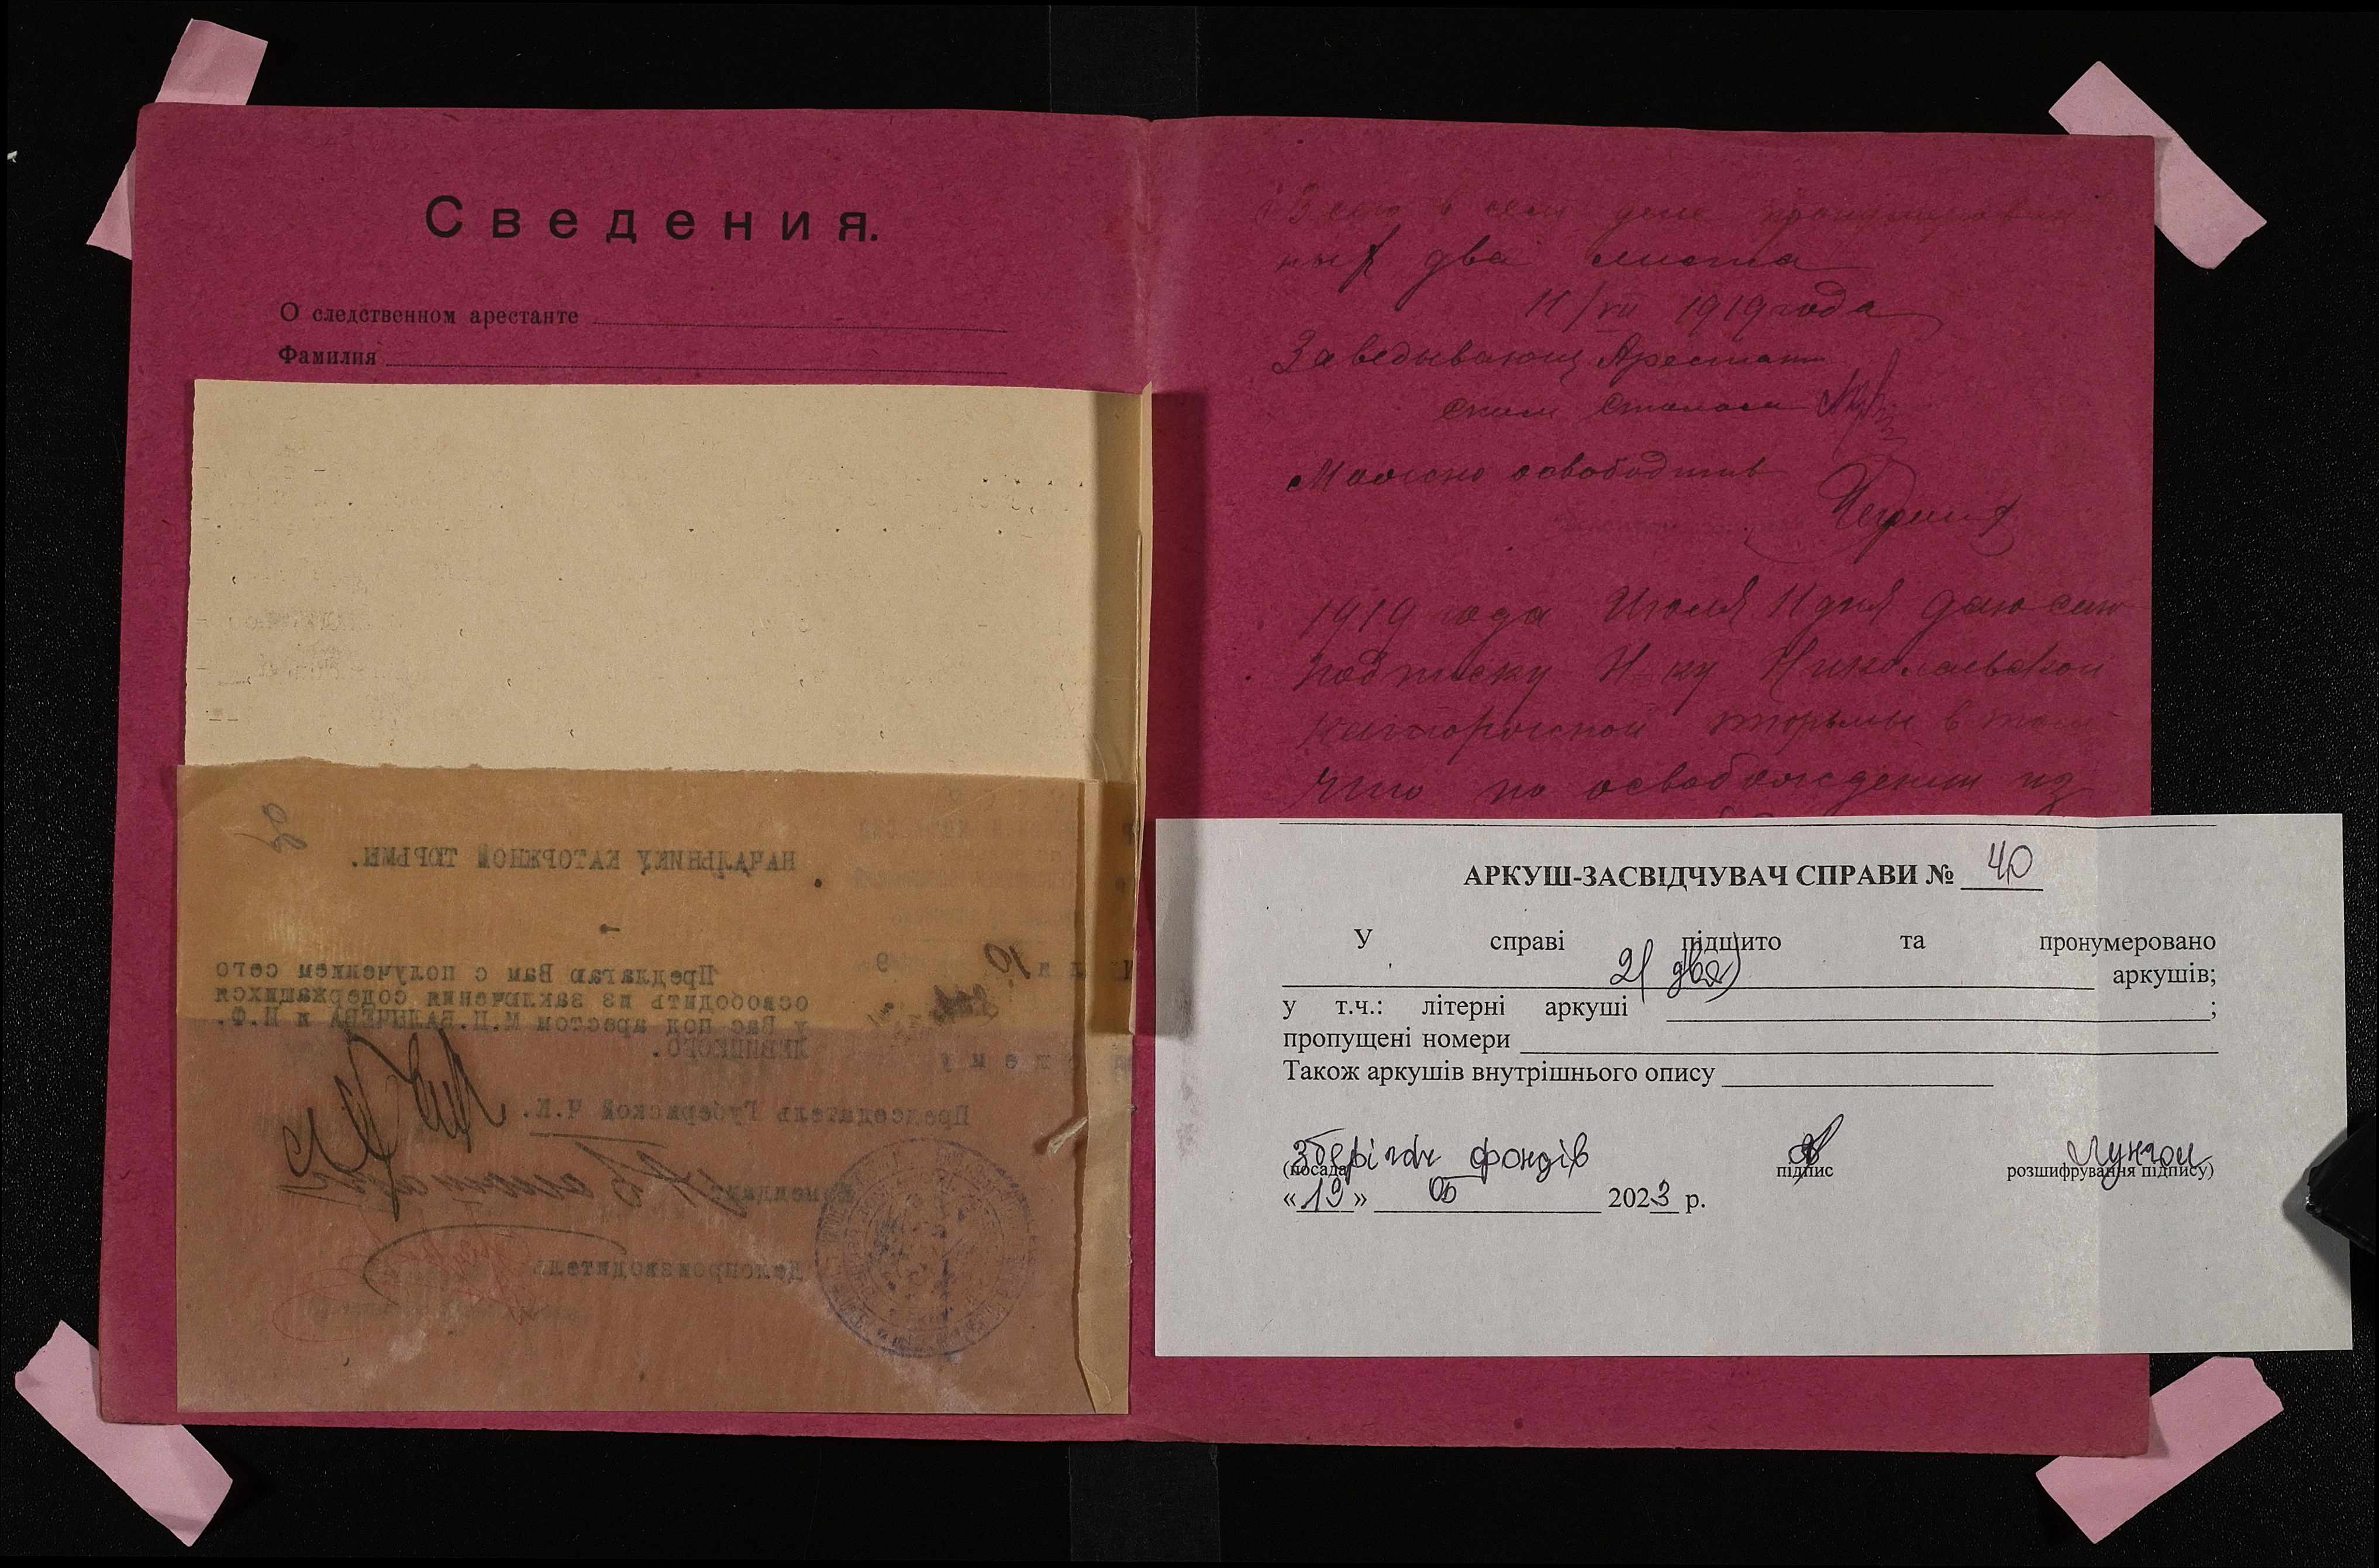 Сведения.
О следственном арестанте
Фамилия
2
НАЧАЛЬНИКУ КАТОРЖНОЙ ТЮРЬМЫ.
10
Предлагаю Вам с получением сего
освободить из заключения содержащихся
у Вас под арестом М.П.ВАЛЫЧЕВА и Н.Ф.
ЛЕВИЦКОГО.
Председатель Губернской Ч.К.
Комендант
Делопроизводитель
Всего в сем деле пронумерован
ных два листа
11/VII 1919 года
Заведывающ Арестант
ским столом
Можно освободить
1919 года Июля 11 дня даю сию
подписку Н-ку Николаевской
каторжной тюрьмы в том
что по освобождении из
АРКУШ-ЗАСВІДЧУВАЧ СПРАВИ № 40
У справі підшито та пронумеровано
2 (два) аркушів;
у т.ч.: літерні аркуші ;
пропущені номери
Також аркушів внутрішнього опису
Зберігач фондів
(посада підпис розшифрування підпису)
«19» 05 2023 р.